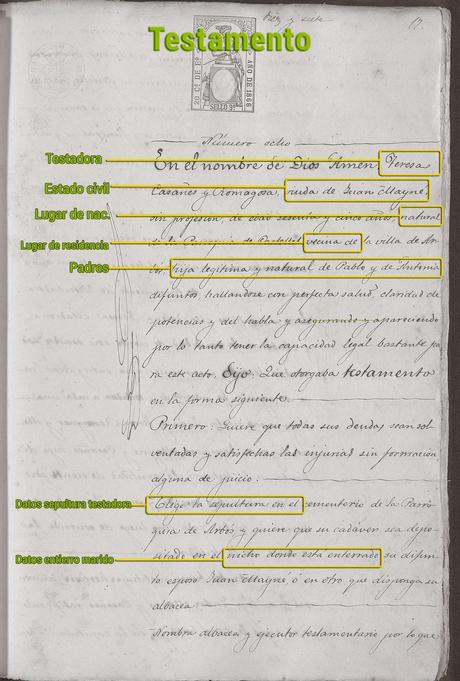 Diez y siete
17.
Testamento
20 CS. DE Eº
AÑO DE 1866
SELLO 9º
Número ocho
Testadora
En el nombre de Dios Amen. Teresa
Estado civil
Casañes y Romagosa, viuda de Juan Mayné,
Lugar de nac.
sin profesion, de edad sesenta y cinco años, natural
Lugar de residencia
de la Parroquia de vecina de la villa de Ar-
Padres
bós, hija legitima y natural de Pablo y de Antonia
difuntos, hallandose con perfecta salud, claridad de
potencias y del habla y asegurando y apareciendo
por lo tanto tener la capacidad legal bastante pa
ra este acto, Dijo: Que otorgaba testamento
en la forma siguiente.
Primero: Quiere que todas sus deudas sean sol
ventadas y satisfechas las injurias sin formacion
alguna de juicio.
Datos sepultura testadora
Elige la sepultura en el cementerio de la Parro
quia de Arbós y quiere que su cadáver sea depo-
Datos entierro marido
sitado en el nicho donde está enterrado su difun
to esposo Juan Mayné, ó en otro que disponga su
albacea.
Nombra albacea y ejecutor testamentario por lo que